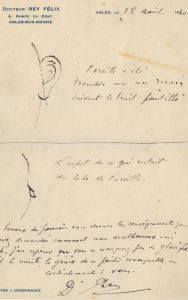 DOCTEUR REY FÉLIX
6, RAMPE DU PONT
ARLES-SUR-RHONE
ARLES, LE 18 août 1930
L'oreille a été
tranchée avec un rasoir
suivant le trait pointillé
L'aspect de ce qui restait
du lobe de l'oreille.
heureux de pouvoir vous donner les renseignements que
vous demandez concernant mon malheureux ami
J'ose espérer que vous ne manquerez pas de glorifier
le génie de ce peintre remarquable
cordialement à vous.
Dr Rey
L'ORDONNANCE